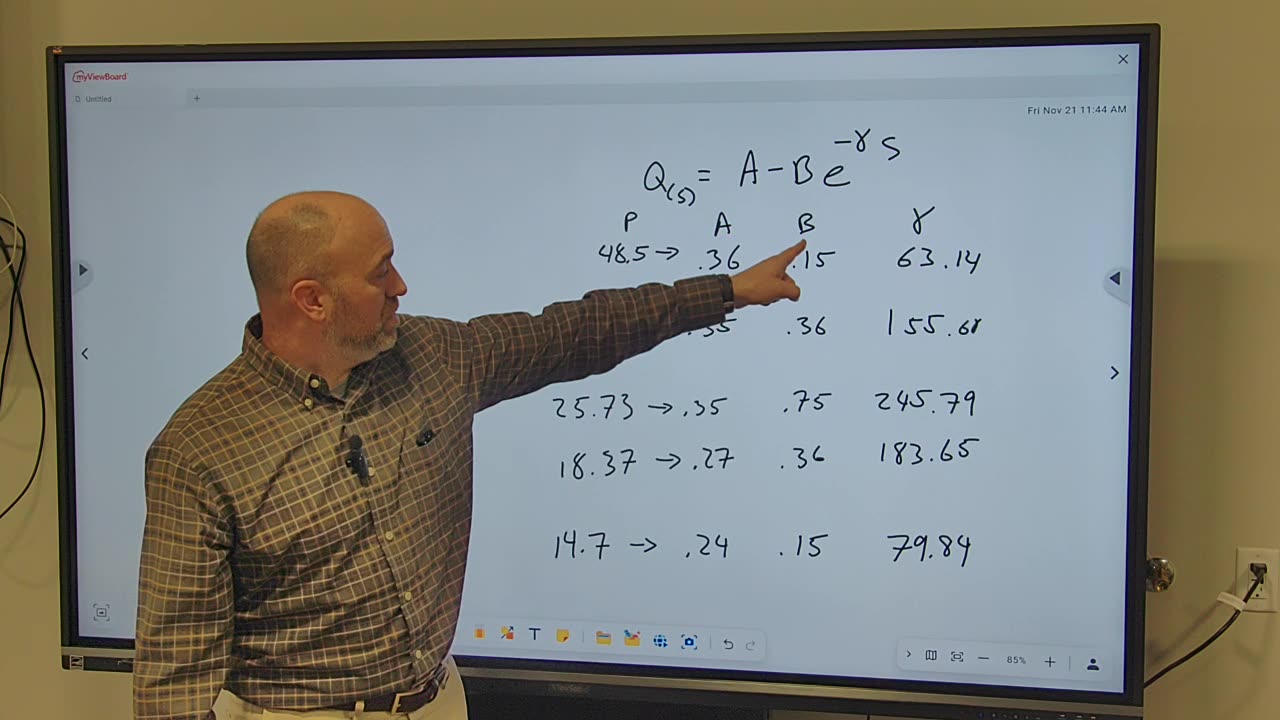 myViewBoard
Untitled
Fri Nov 21 11:44 AM
Q(s) = A - B e^{-γ s}
P A B γ
48.5 → .36 .15 63.14
.35 .36 155.68
25.73 → .35 .75 245.79
18.37 → .27 .36 183.65
14.7 → .24 .15 79.84
T
85%